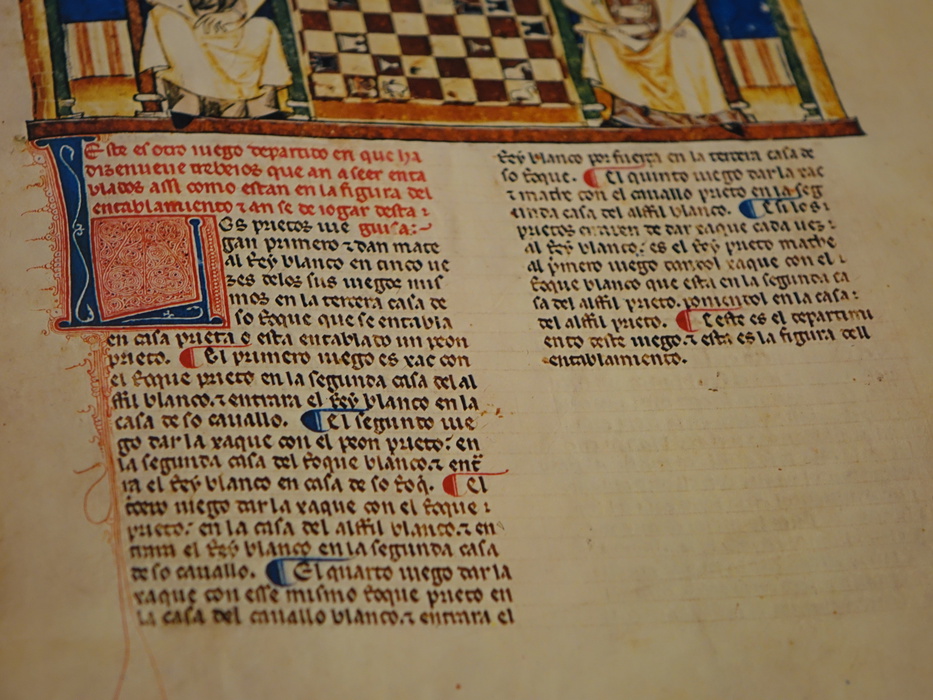 Este es otro iuego departido en que ha
dizenueue trebeios que an a seer enta
blados assi como estan en la figura del
entablamiento ⁊ an se de iogar desta :
guisa:~
Los prietos iue
gan primero ⁊ dan mate
al Rey blanco en cinco ue
zes delos sus iuegos mis
mos en la tercera casa de
so Roque que se entabla
en casa prieta e esta entablado un peon
prieto. El primero iuego es xac con
el Roque prieto en la segunda casa del al
ffil blanco. ⁊ entrara el Rey blanco en la
casa de so cauallo. El segundo iue
go dar la xaque con el peon prieto: en
la segunda casa del Roque blanco. ⁊ ent̃
ra el Rey blanco en casa de so Roq̃. El
t̃cero iuego dar la xaque con el Roque :
prieto: en la casa del alffil blanco. ⁊ en
trara el Rey blanco en la segunda casa
de so cauallo. El quarto iuego dar la
xaque con esse mismo Roque prieto en
la casa del cauallo blanco. ⁊ entrara el
Rey blanco por fuerça en la tercera casa de
so Roque. El quinto iuego dar la xac
⁊ mathe con el cauallo prieto en la seg
unda casa del alffil blanco. E si los :
prietos erraren de dar xaque cada uez :
al Rey blanco: es el Rey prieto mathe
al p̃mero iuego dandol xaque con el :
Roque blanco que esta en la segunda ca
sa del alffil prieto. poniendol en la casa :
del alffil prieto. E este es el departimi
ento deste iuego. ⁊ esta es la figura dell
entablamiento.